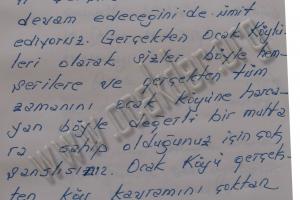 devam edeceğini de ümit
ediyoruz. Gerçekten Ocak Köylü-
leri olarak sizler böyle hem-
şerilere ve gerçekten tüm
zamanını Ocak Köyüne harca-
yan böyle değerli bir muhta-
ra sahip olduğunuz için çok
şanslısınız. Ocak Köyü gerçek-
ten köy kavramını çoktan